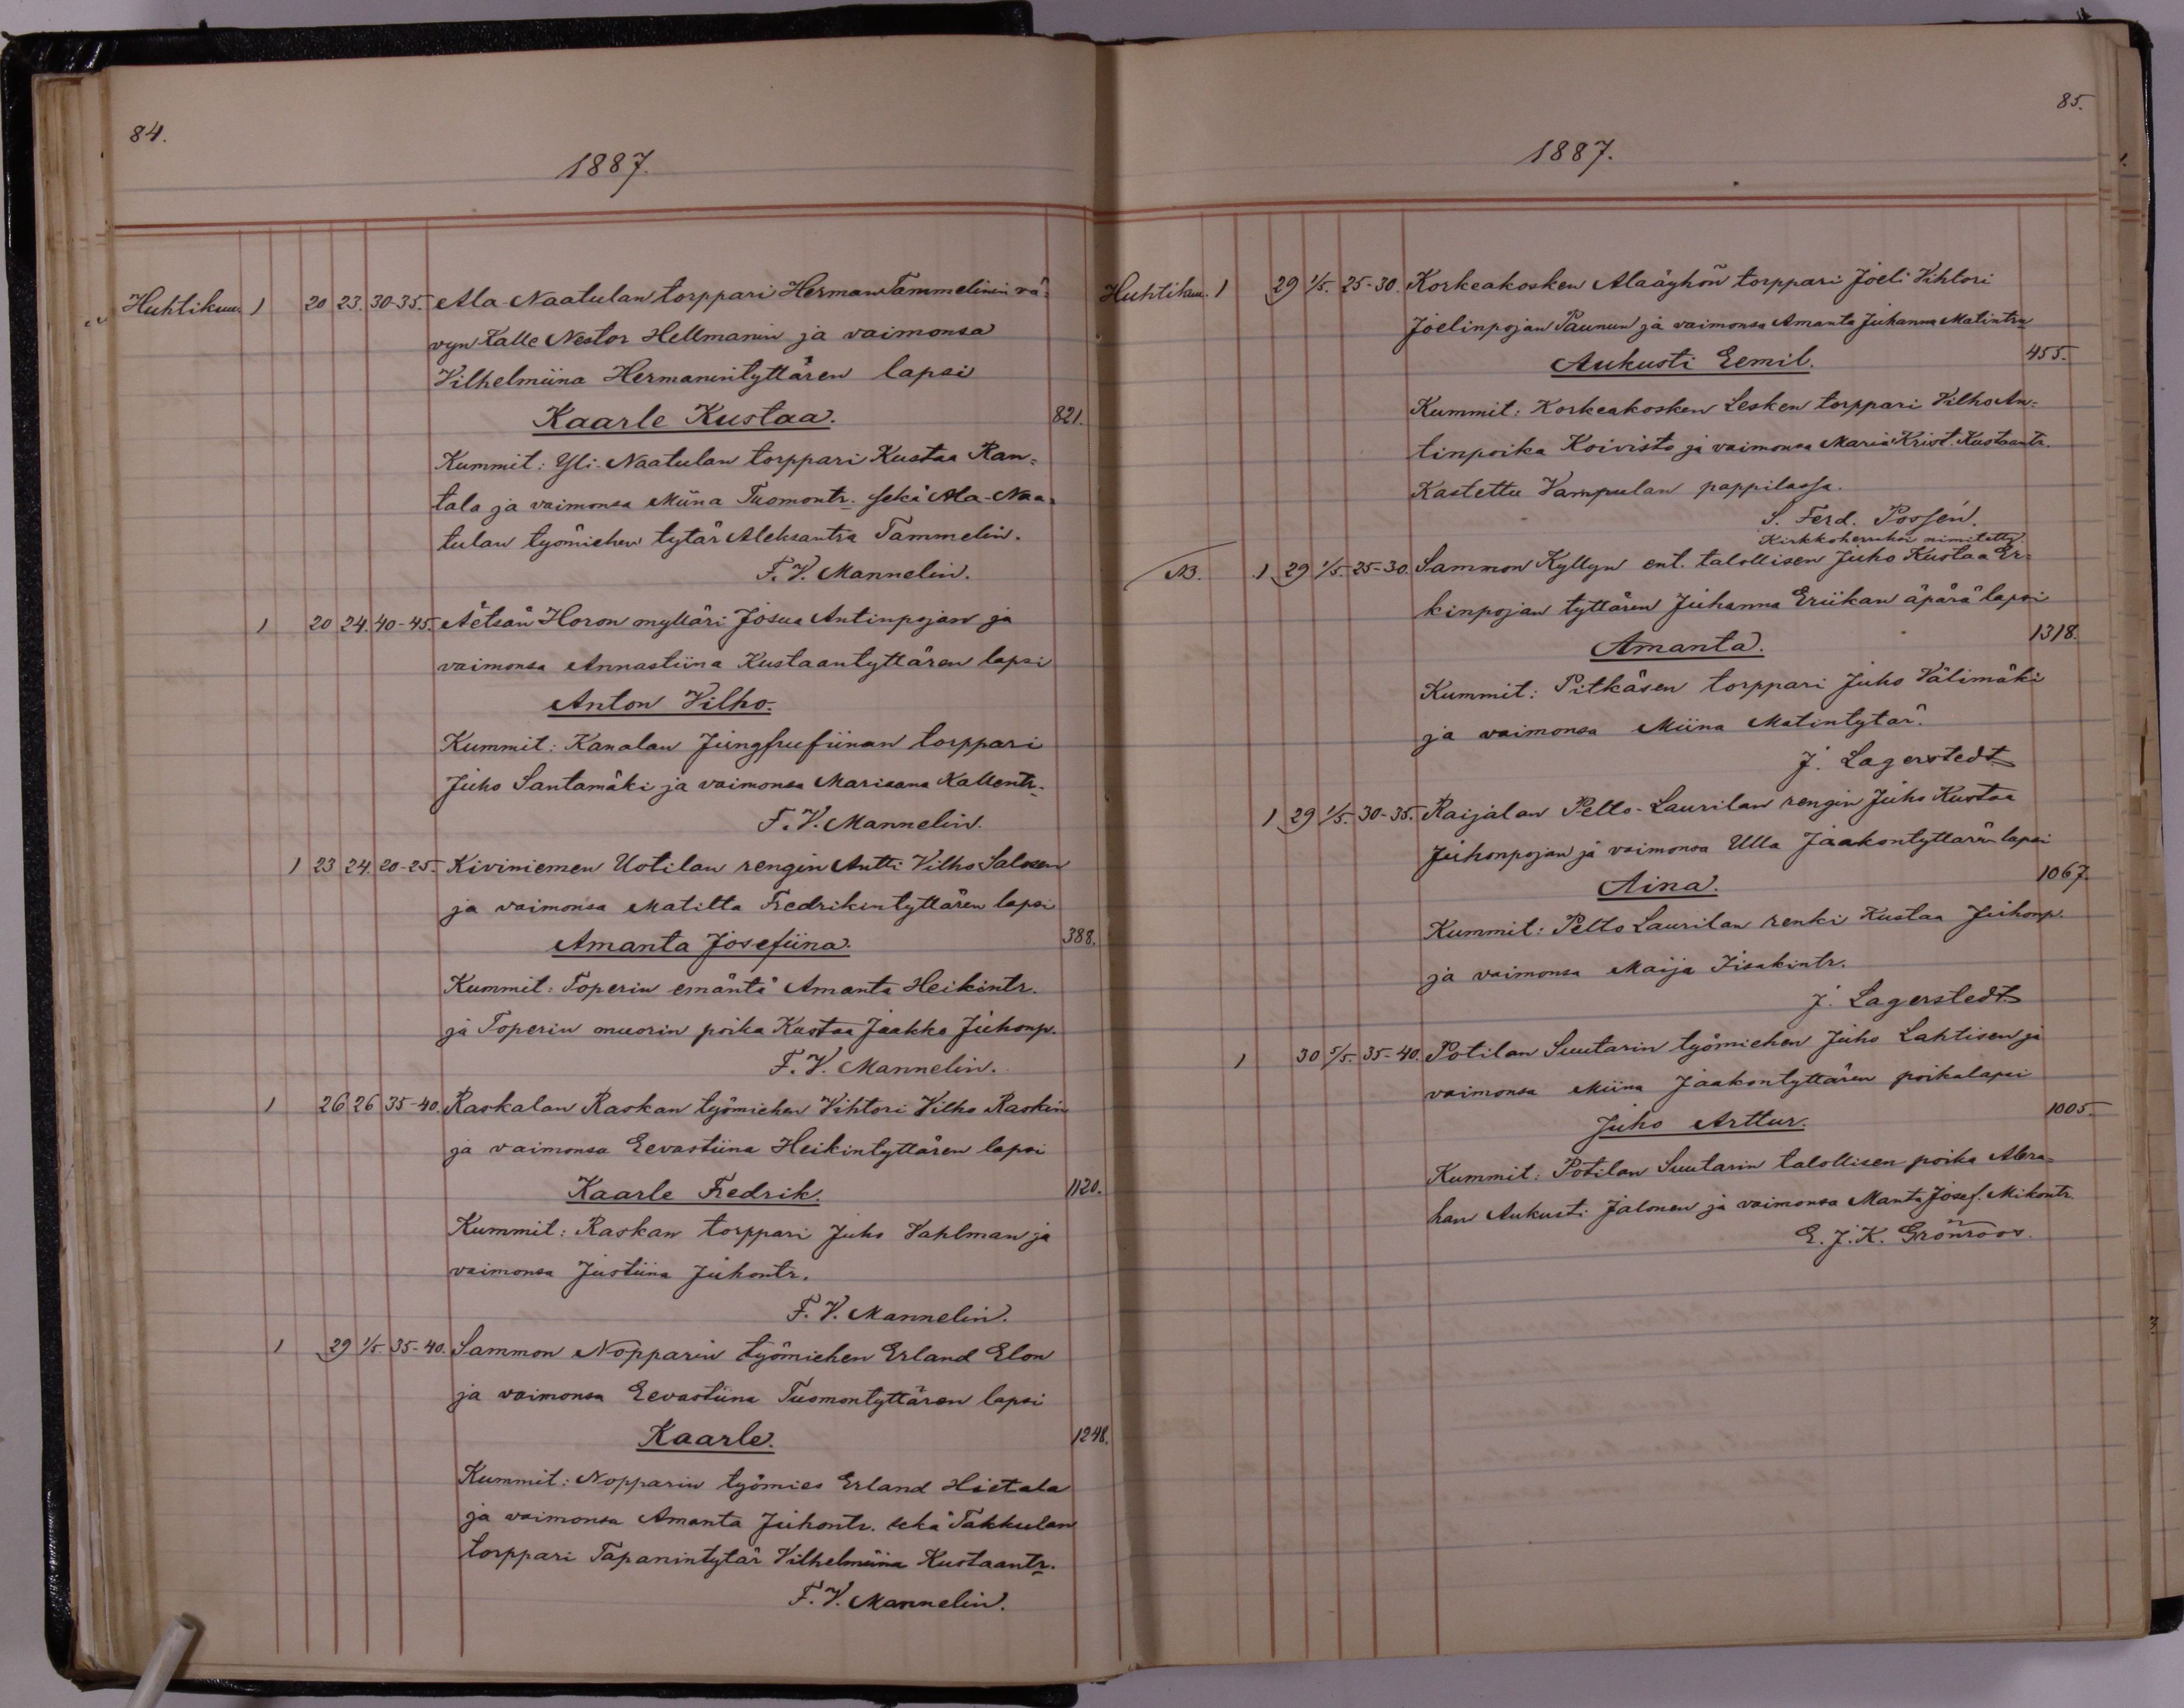 84.
1887.
Huhtikuu. 1 20 23. 30-35. Ala-Naatulan torppari Herman Tammelinin vä-
vyn Kalle Nestor Hellmanin ja vaimonsa
Vilhelmiina Hermanintyttären lapsi
Kaarle Kustaa. 821.
Kummit: Yli-Naatulan torppari Kustaa Ran-
tala ja vaimonsa Miina Tuomontr. sekä Ala-Naa-
tulan työmiehen tytär Aleksantra Tammelin.
F. V. Mannelin.
1 20 24. 40-45. Äetsän Horon mylläri Josua Antinpojan ja
vaimonsa Annastiina Kustaantyttären lapsi
Anton Vilho.
Kummit: Kanalan Jungfrufiinan torppari
Juho Santamäki ja vaimonsa Marisana Kallentr.
F. V. Mannelin.
1 23 24. 20-25. Kiviniemen Uotilan rengin Antti Vilho Salosen
ja vaimonsa Matilta Fredrikintyttären lapsi
Amanta Josefiina. 388.
Kummit: Toperin emäntä Amanta Heikintr.
ja Toperin muorin poika Kustaa Jaakko Juhonp.
F. V. Mannelin.
1 26 26 35-40. Raskalan Raskan työmiehen Vihtori Vilho Raskin
ja vaimonsa Eevastiina Heikintyttären lapsi
Kaarle Fredrik. 1120.
Kummit: Raskan torppari Juho Vahlman ja
vaimonsa Justiina Juhontr.
F. V. Mannelin.
1 29 1/5. 35-40. Sammon Nopparin työmiehen Erland Elon
ja vaimonsa Eevastiina Tuomontyttären lapsi
Kaarle. 1248.
Kummit: Nopparin työmies Erland Hietala
ja vaimonsa Amanta Juhontr. sekä Takkulan
torppari Tapanintytär Vilhelmiina Kustaantr.
F. V. Mannelin.
85.
1887.
Huhtikuu. 1 29 1/5. 25-30. Korkeakosken Alaäyhön torppari Joeli Vihtori
Joelinpojan Paunun ja vaimonsa Amanta Juhanna Matintrn
Aukusti Eemil. 455.
Kummit: Korkeakosken Lesken torppari Vilho An-
tinpoika Koivisto ja vaimonsa Maria Krist. Kustaantr.
Kastettu Vampulan pappilassa.
S. Ferd. Possén.
Kirkkoherraksi nimitetty.
NB. 1 29 1/5. 25-30. Sammon Kyllyn ent. talollisen Juho Kustaa Er-
kinpojan tyttären Juhanna Eriikan äpärä lapsi
Amanta. 1318.
Kummit: Pitkäsen torppari Juho Välimäki
ja vaimonsa Miina Matintytär.
J. Lagerstedt
1 29 1/5. 30-35. Raijalan Pelto-Laurilan rengin Juho Kustaa
Juhonpojan ja vaimonsa Ulla Jaakontyttären lapsi
Aina. 1067.
Kummit: Pelto Laurilan renki Kustaa Juhonp.
ja vaimonsa Maija Iisakintr.
J. Lagerstedt
1 30 5/5. 35-40. Potilan Suutarin työmiehen Juho Lahtisen ja
vaimonsa Miina Jaakontyttären poikalapsi
Juho Arttur. 1005.
Kummit: Potilan Suutarin talollisen poika Abra-
ham Aukusti Jalonen ja vaimonsa Manta Josef. Mikontr.
E. J. K. Grönroos.